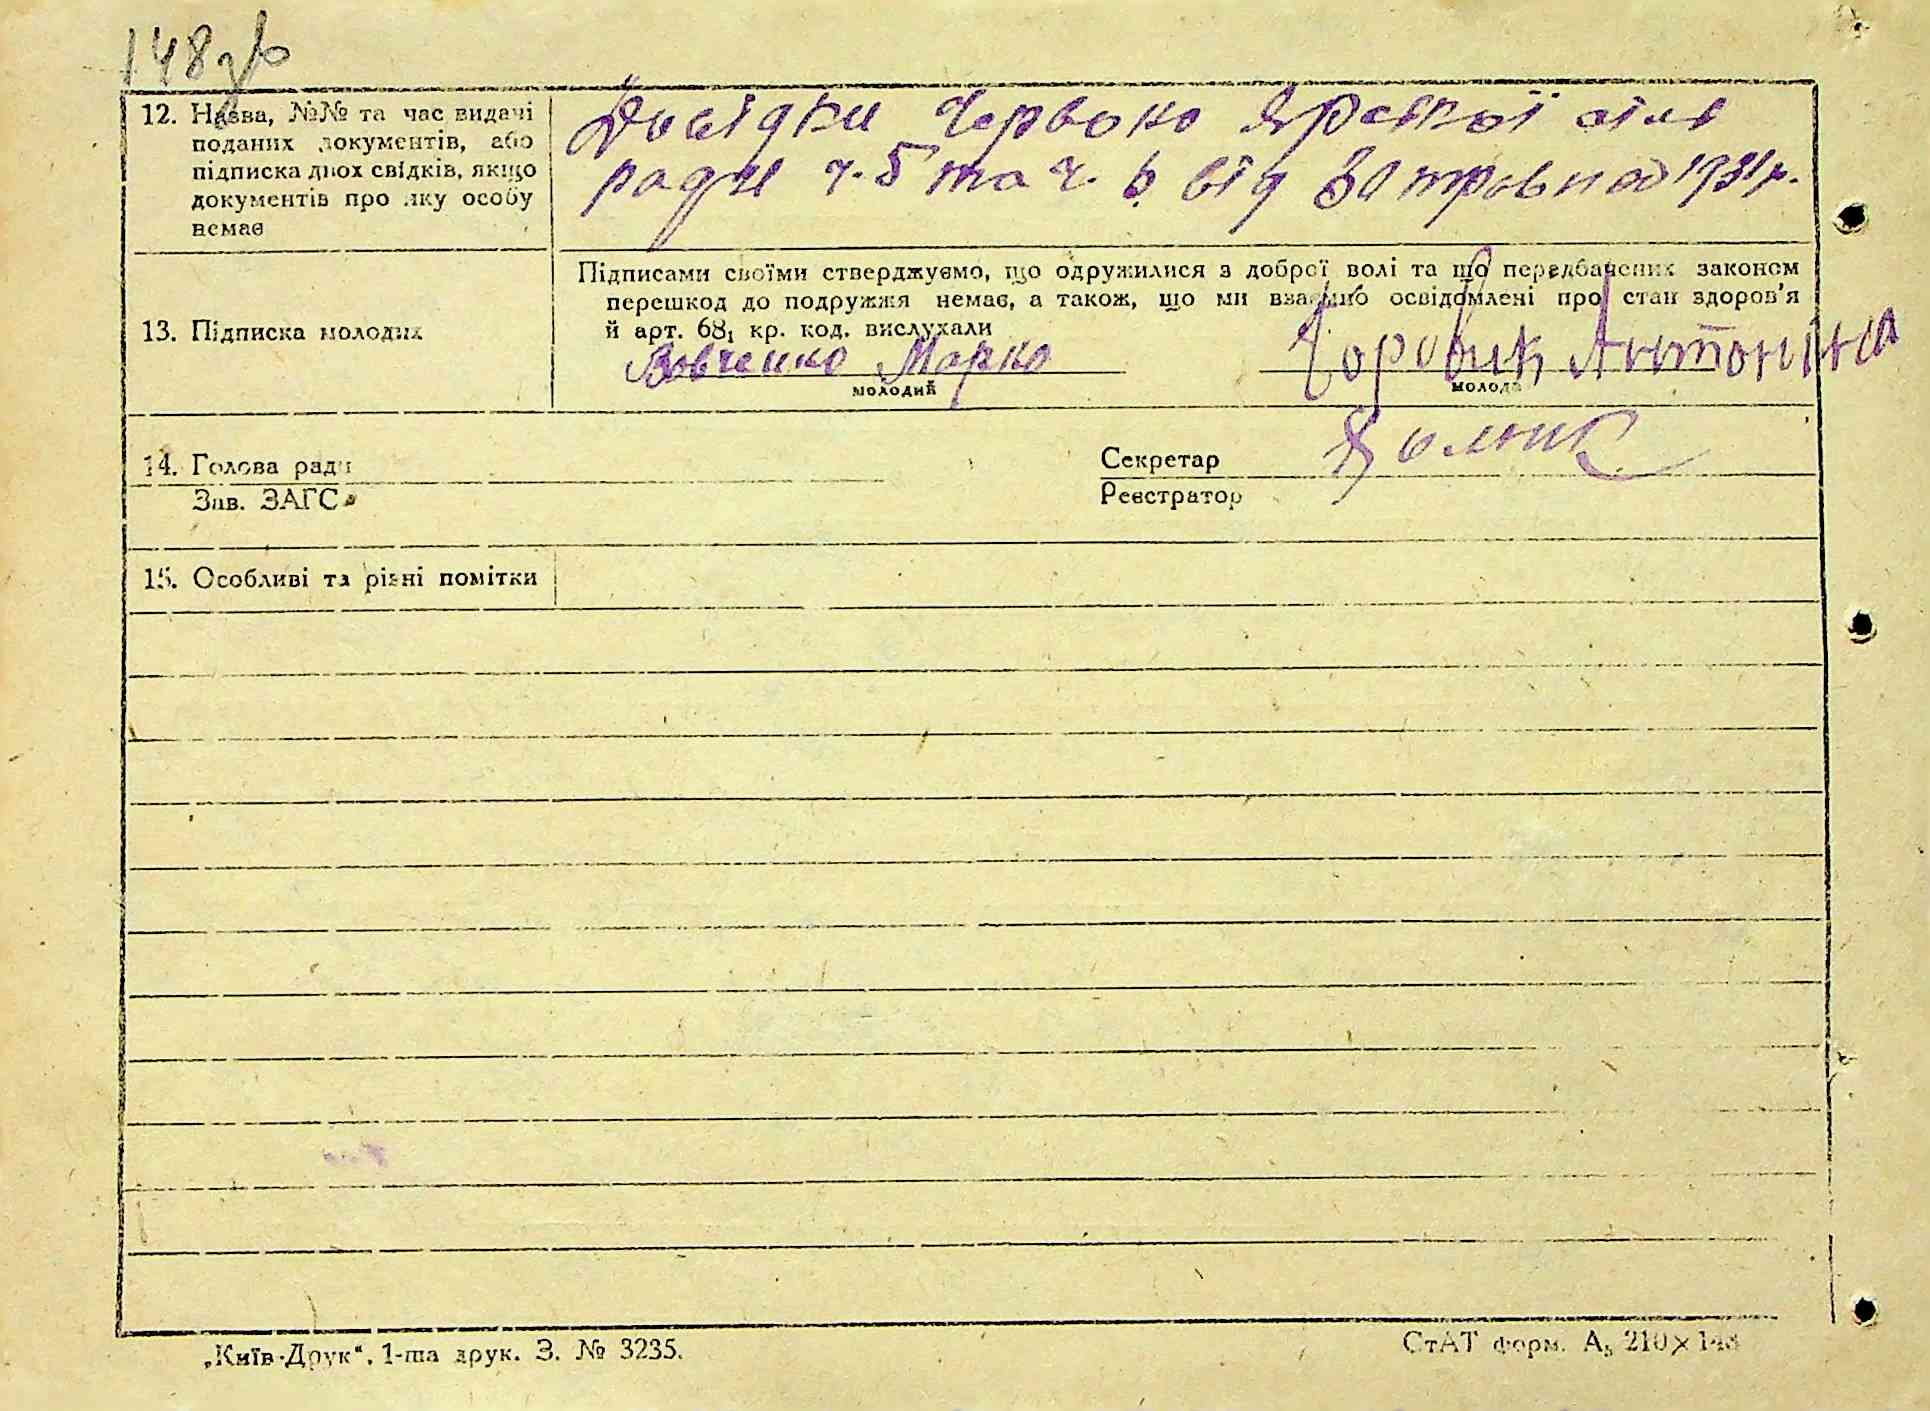 148 зв
12. Назва, №№ та час видачі поданих документів, або підписка двох свідків, якщо документів про яку особу немає
Довідки Червоно Ярської сіль
ради ч. 5 та ч. 6 від 30 травня 1931 р.
13. Підписка молодих
Підписами своїми стверджуємо, що одружилися з доброї волі та що передбачених законом
перешкод до подружжя немає, а також, що ми взаємно освідомлені про стан здоров'я
й арт. 68₁ кр. код. вислухали
Вовченко Марко
Антоніна
молодий
молода
14. Голова ради
Зав. ЗАГС
Секретар
Реєстратор
15. Особливі та різні помітки
„Київ-Друк“. 1-ша друк. З. № 3235.
СтАТ форм. А₅ 210×148